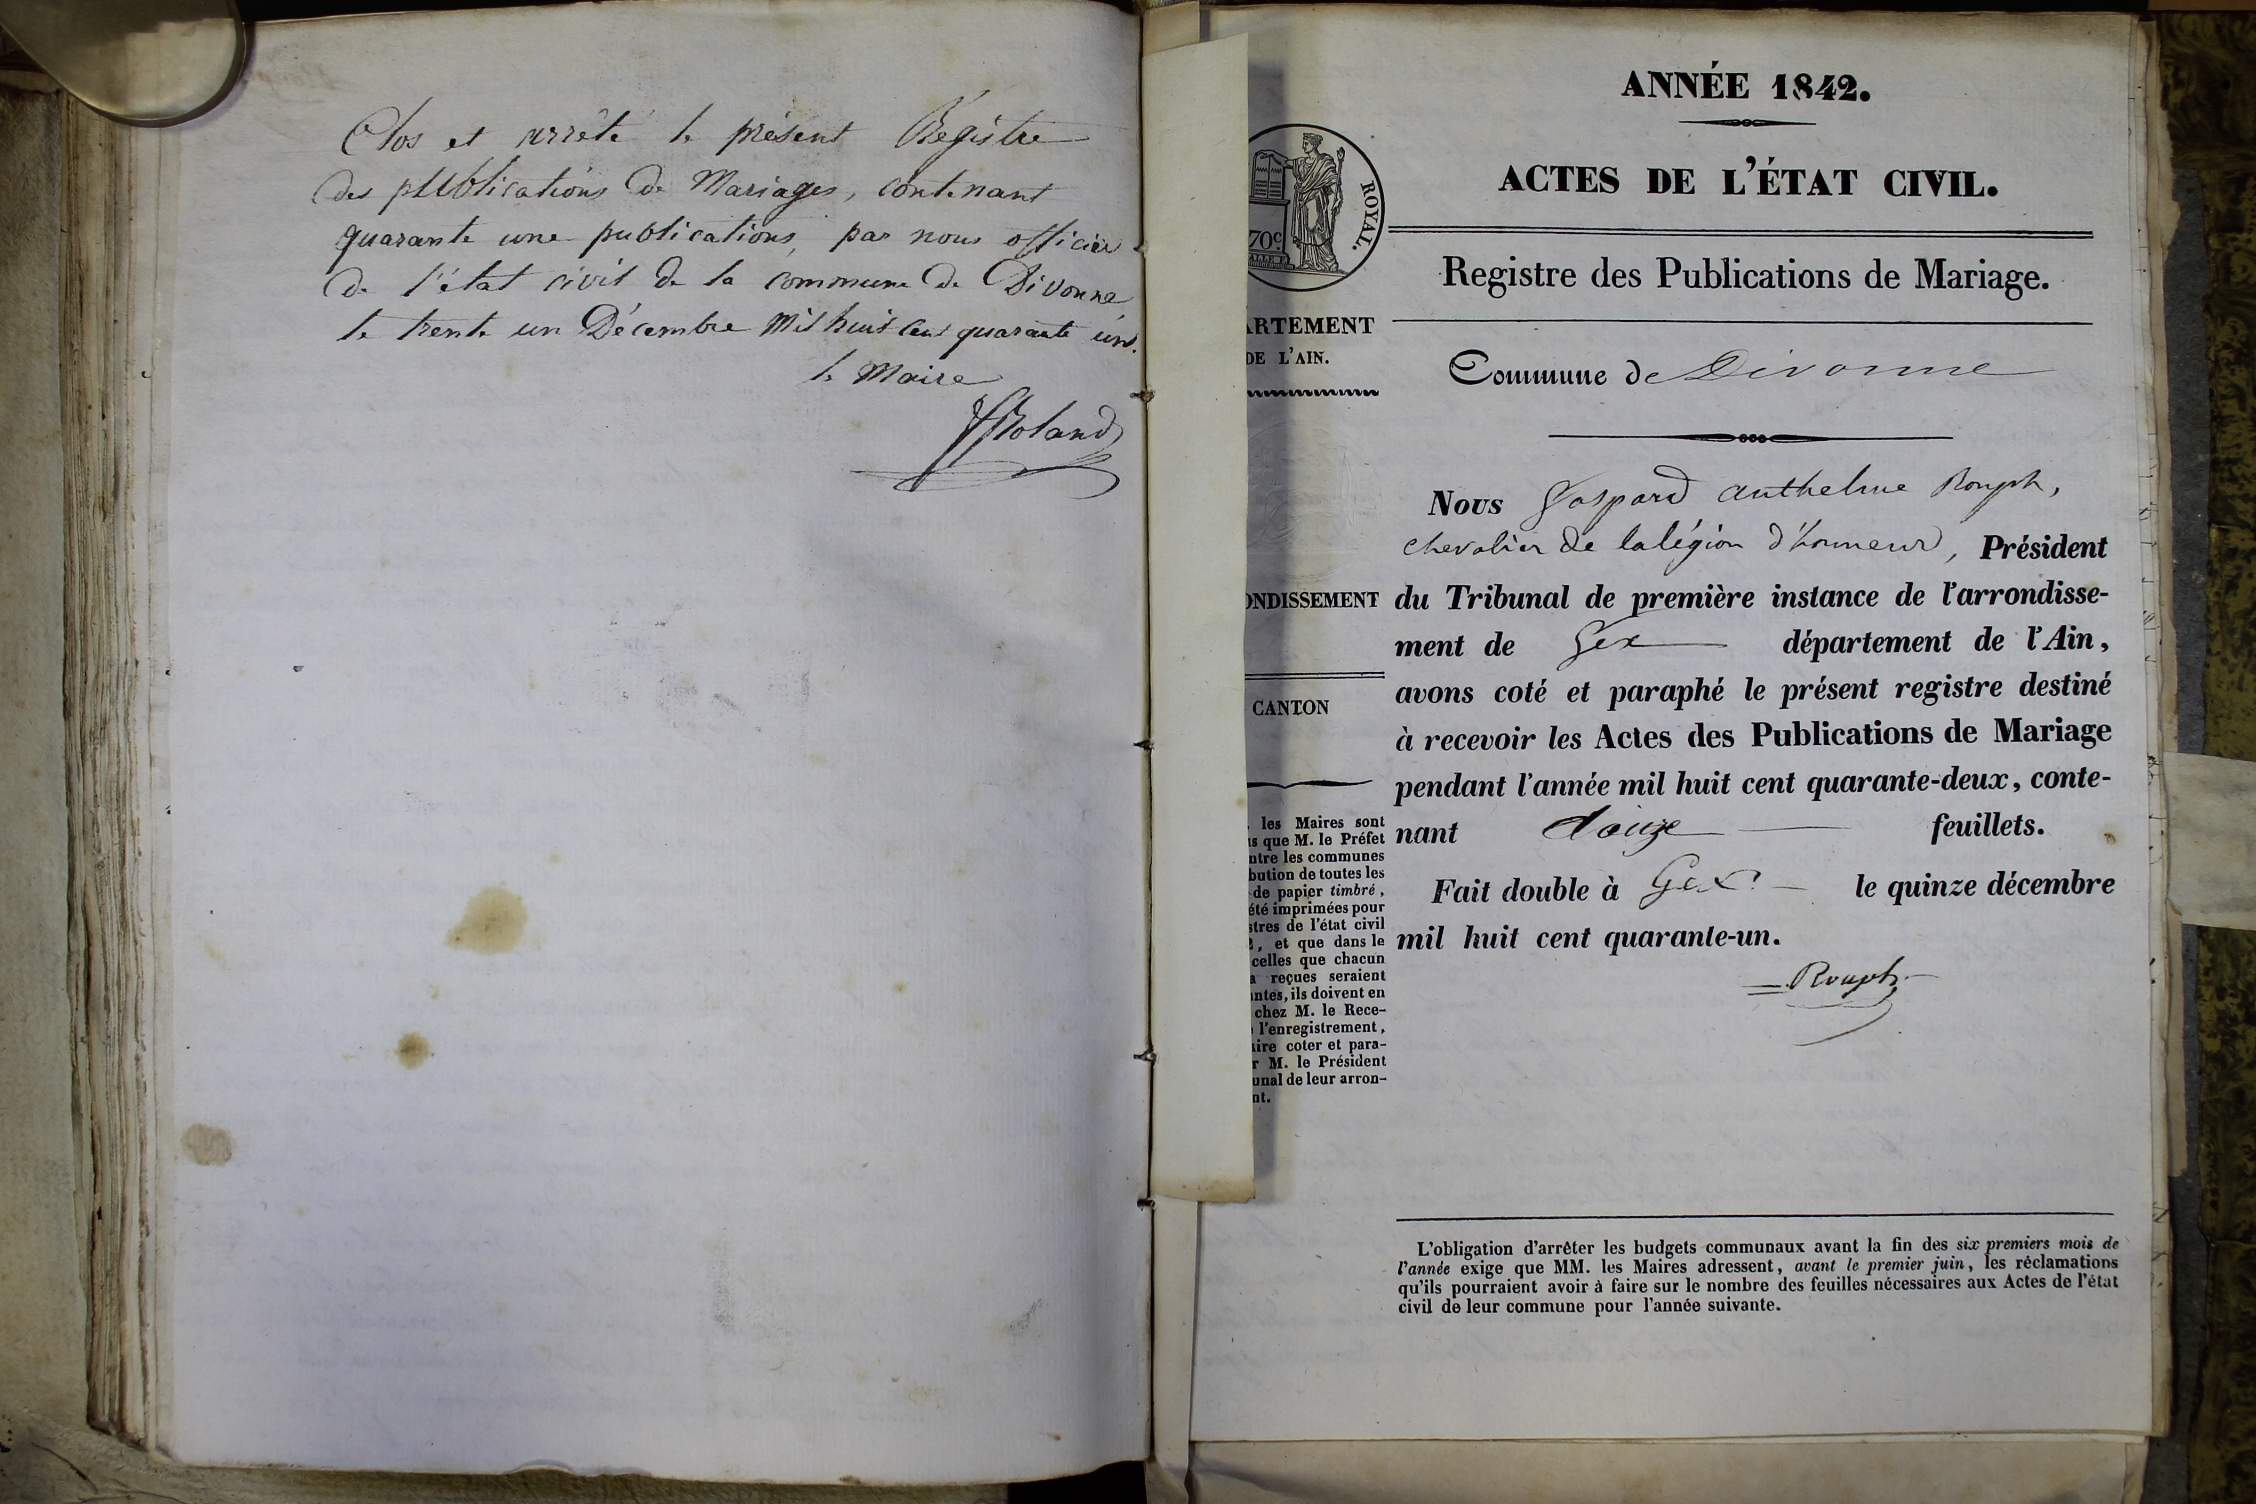 Clos et arrêté le présent Régistre
des publications de Mariages, contenant
quarante une publications, par nous officier
de l'état civil de la commune de Divonne
le trente un Décembre Mil huit cent quarante un.
le Maire
Roland
ROYAL.
70c
ARTEMENT
DE L'AIN.
ONDISSEMENT
CANTON
les Maires sont
que M. le Préfet
ntre les communes
bution de toutes les
de papier timbré,
été imprimées pour
stres de l'état civil
, et que dans le
celles que chacun
a reçues seraient
ntes, ils doivent en
chez M. le Rece-
l'enregistrement,
ire coter et para-
r M. le Président
unal de leur arron-
nt.
ANNÉE 1842.
ACTES DE L'ÉTAT CIVIL.
Registre des Publications de Mariage.
Commune de Divonne
Nous Gaspard Anthelme Rouph,
chevalier de la légion d'honneur, Président
du Tribunal de première instance de l'arrondisse-
ment de Gex département de l'Ain,
avons coté et paraphé le présent registre destiné
à recevoir les Actes des Publications de Mariage
pendant l'année mil huit cent quarante-deux, conte-
nant douze feuillets.
Fait double à Gex le quinze décembre
mil huit cent quarante-un.
Rouph
L'obligation d'arrêter les budgets communaux avant la fin des six premiers mois de
l'année exige que MM. les Maires adressent, avant le premier juin, les réclamations
qu'ils pourraient avoir à faire sur le nombre des feuilles nécessaires aux Actes de l'état
civil de leur commune pour l'année suivante.